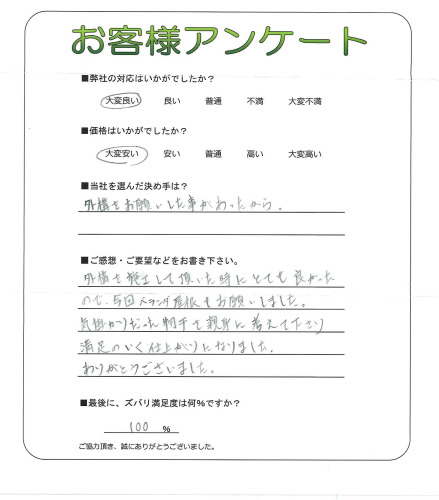 お客様アンケート
■弊社の対応はいかがでしたか？
大変良い 良い 普通 不満 大変不満
■価格はいかがでしたか？
大変安い 安い 普通 高い 大変高い
■当社を選んだ決め手は？
外構をお願いした事があったから。
■ご感想・ご要望などをお書き下さい。
外構を施工して頂いた時にとても良かった
ので、今回ベランダ屋根もお願いしました。
気掛かりだった も親身に考えて下さり
満足のいく仕上がりになりました。
ありがとうございました。
■最後に、ズバリ満足度は何％ですか？
100 ％
ご協力頂き、誠にありがとうございました。